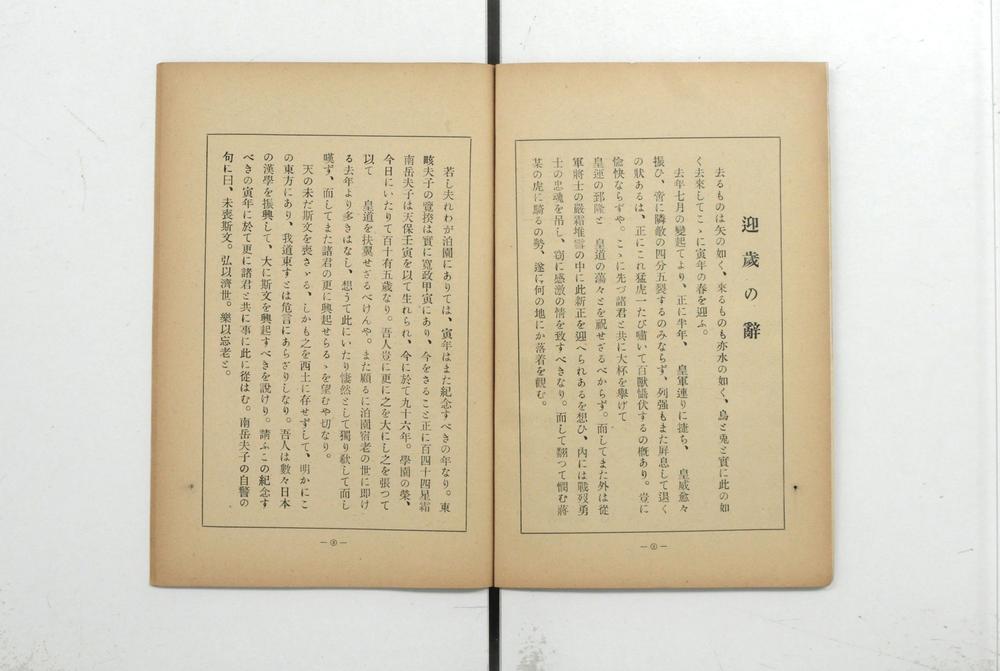 迎歲の辭
去るものは矢の如く、來るものも亦水の如く、烏と兎と實に此の如
く去來してこゝに寅年の春を迎ふ。
去年七月の變起てより、正に半年、 皇軍連りに捷ち、 皇威愈々
振ひ、啻に隣敵の四分五裂するのみならず、列强もまた屛息して退く
の狀あるは、正にこれ猛虎一たび嘯いて百獸慴伏するの槪あり。豈に
愉快ならずや。こゝに先づ諸君と共に大杯を擧げて
皇運の郅隆と 皇道の蕩々とを祝せざるべからず。而してまた外は從
軍將士の嚴霜堆雪の中に此新正を迎へられあるを想ひ、內には戰歿勇
士の忠魂を吊し、竊に感激の情を致すべきなり。而して翻つて憫む蔣
某の虎に騎るの勢、遂に何の地にか落着を觀む。
若し夫れわが泊園にありては、寅年はまた紀念すべきの年なり。東
畡夫子の覽揆は實に寬政甲寅にあり、今をさること正に百四十四星霜
南岳夫子は天保壬寅を以て生れられ、今に於て九十六年。學園の榮、
今日にいたりて百十有五歲なり。吾人豈に更に之を大にし之を張つて
以て 皇道を扶翼せざるべけんや。また顧るに泊園宿老の世に卽け
る去年より多きはなし、想うて此にいたり悽然として獨り欷して而し
嘆ず、而してまた諸君の更に興起せらるゝを望むや切なり。
天の未だ斯文を喪さゞる、しかも之を西土に存せずして、明かにこ
の東方にあり、我道東すとは危言にあらざりしなり。吾人は數々日本
の漢學を振興して、大に斯文を興起すべきを說けり。請ふこの紀念す
べきの寅年に於て更に諸君と共に事に此に從はむ。南岳夫子の自警の
句に曰、未喪斯文。弘以濟世。樂以忘老と。